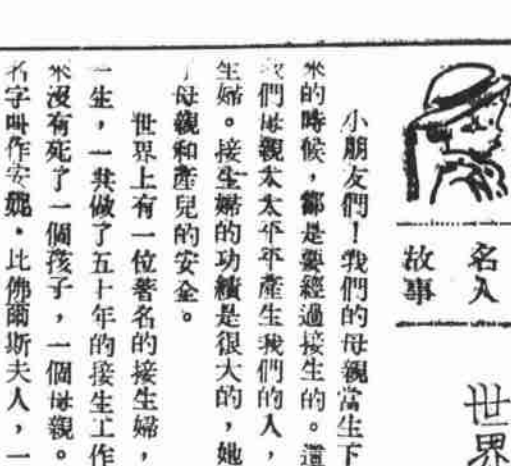 世界
名人
故事
小朋友們！我們的母親當生下
來的時候，都是要經過接生的。這
我們母親太太平平產生我們的人，
生婦。接生婦的功績是很大的，她
了母親和產兒的安全。
世界上有一位著名的接生婦，
一生，一共做了五十年的接生工作
來沒有死了一個孩子，一個母親。
名字叫作安妮．比佛爾斯夫人，一